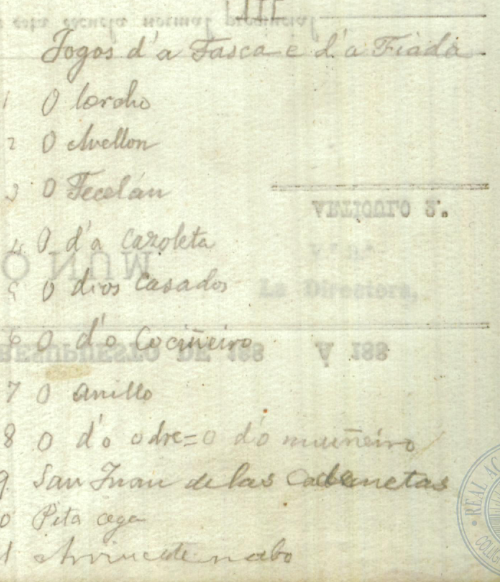 Jogos d'a Tasca e d'a Fiada
1 O lorcho
2 O Avellon
3 O Tecelán
4 O d'a Cazoleta
5 O d'os Casados
6 O d'o Cociñeiro
7 O anillo
8 O d'o odre = O d'o muiñeiro
9 San Juan de las Cadenetas
0 Pita cega
1 nabo
ARTÍCULO 3.
V.º B.º
La Directora,
PRESUPUESTO DE 188 Á 188